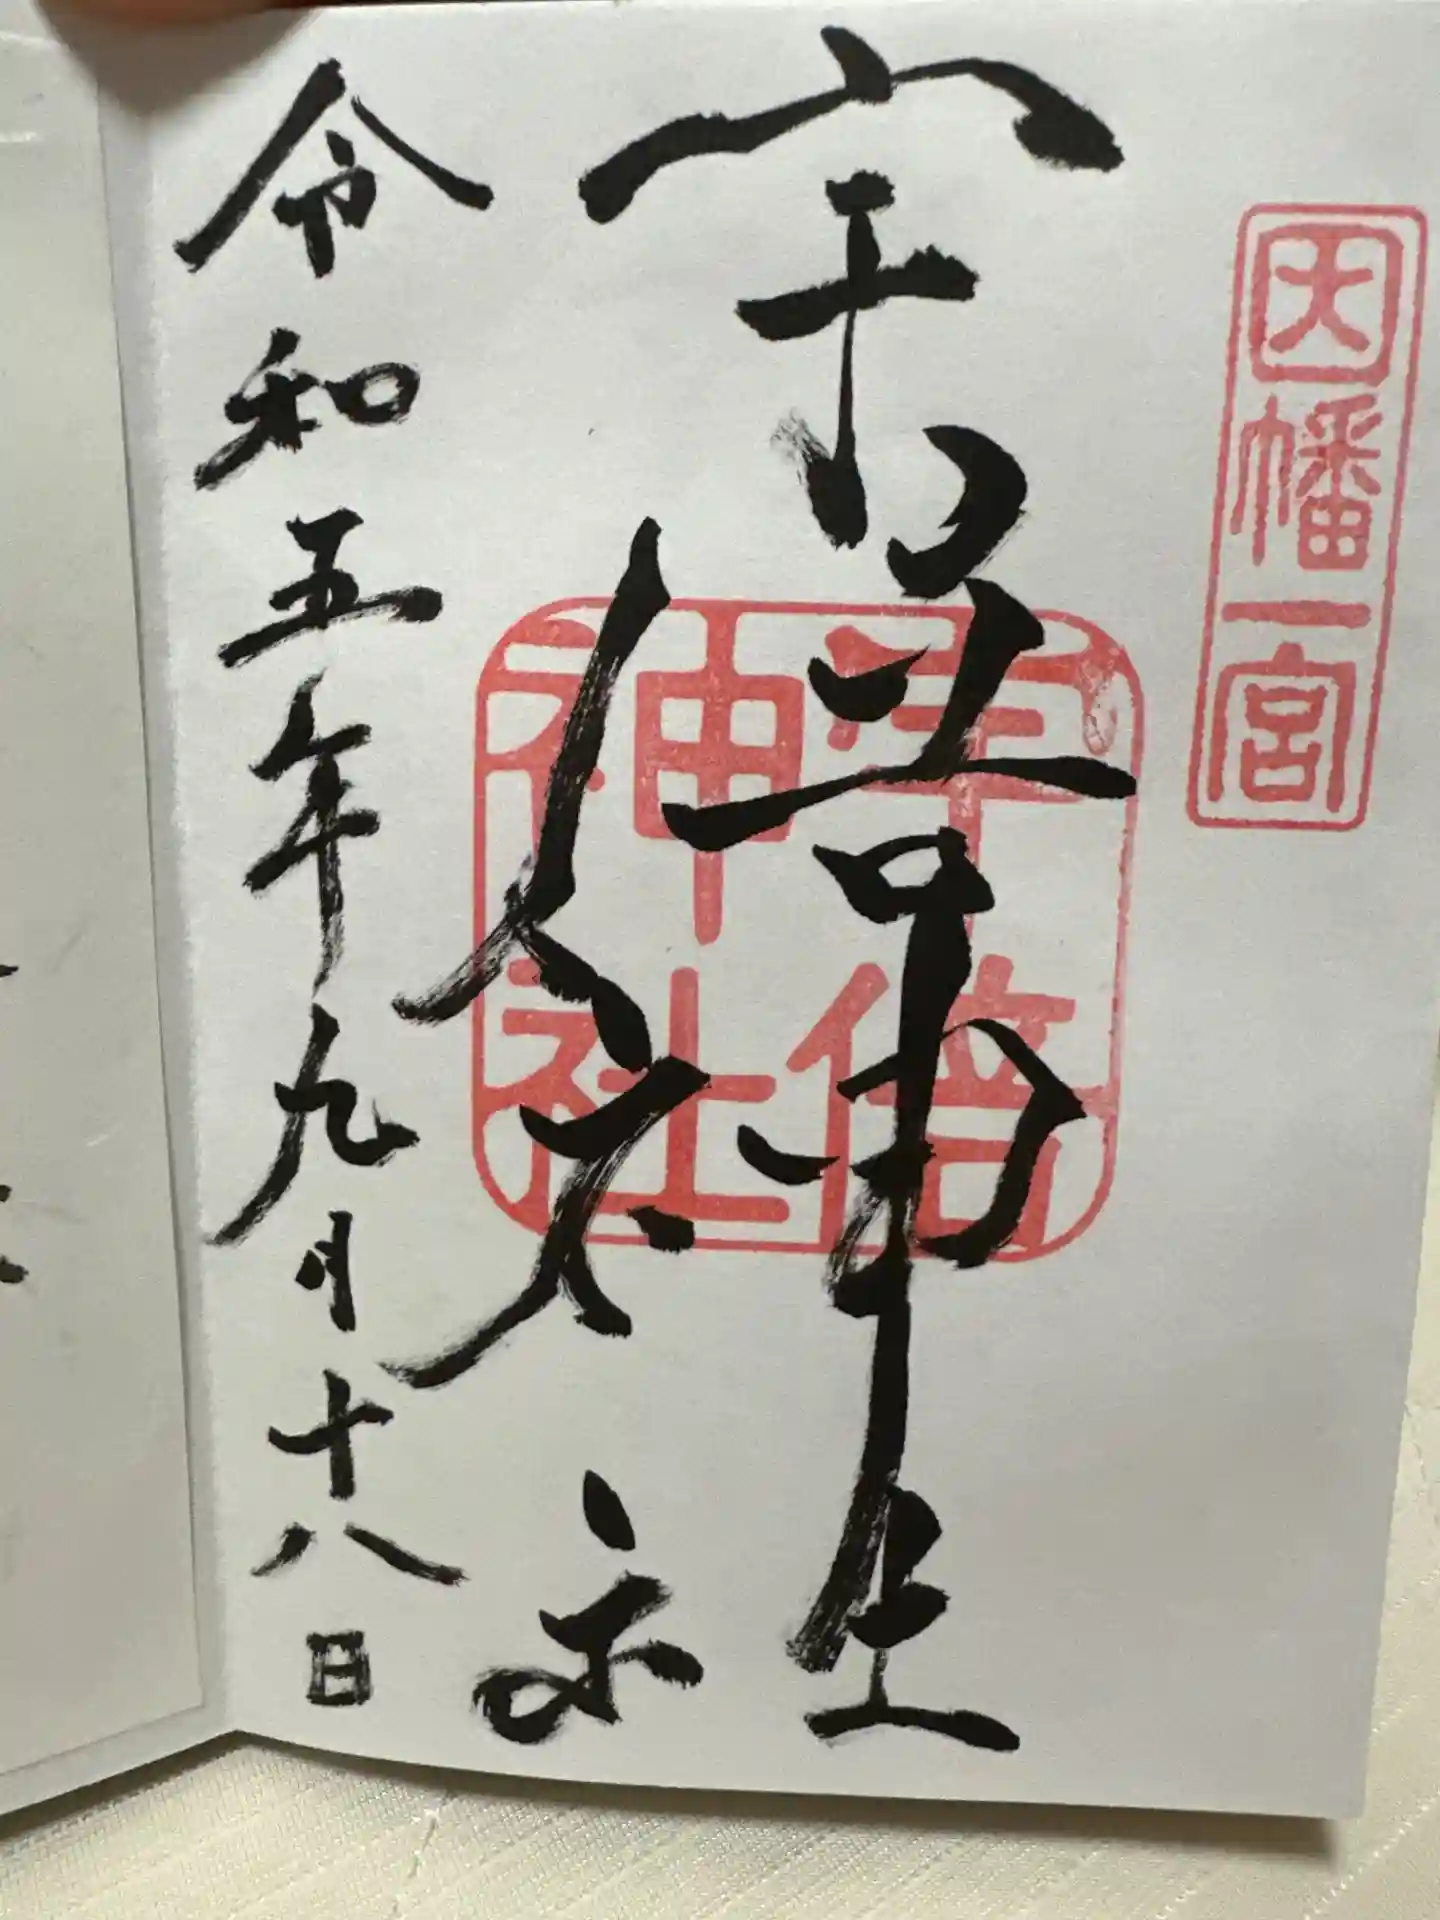 因幡一宮
宇倍神社
宇倍
神社
令和五年九月十八日